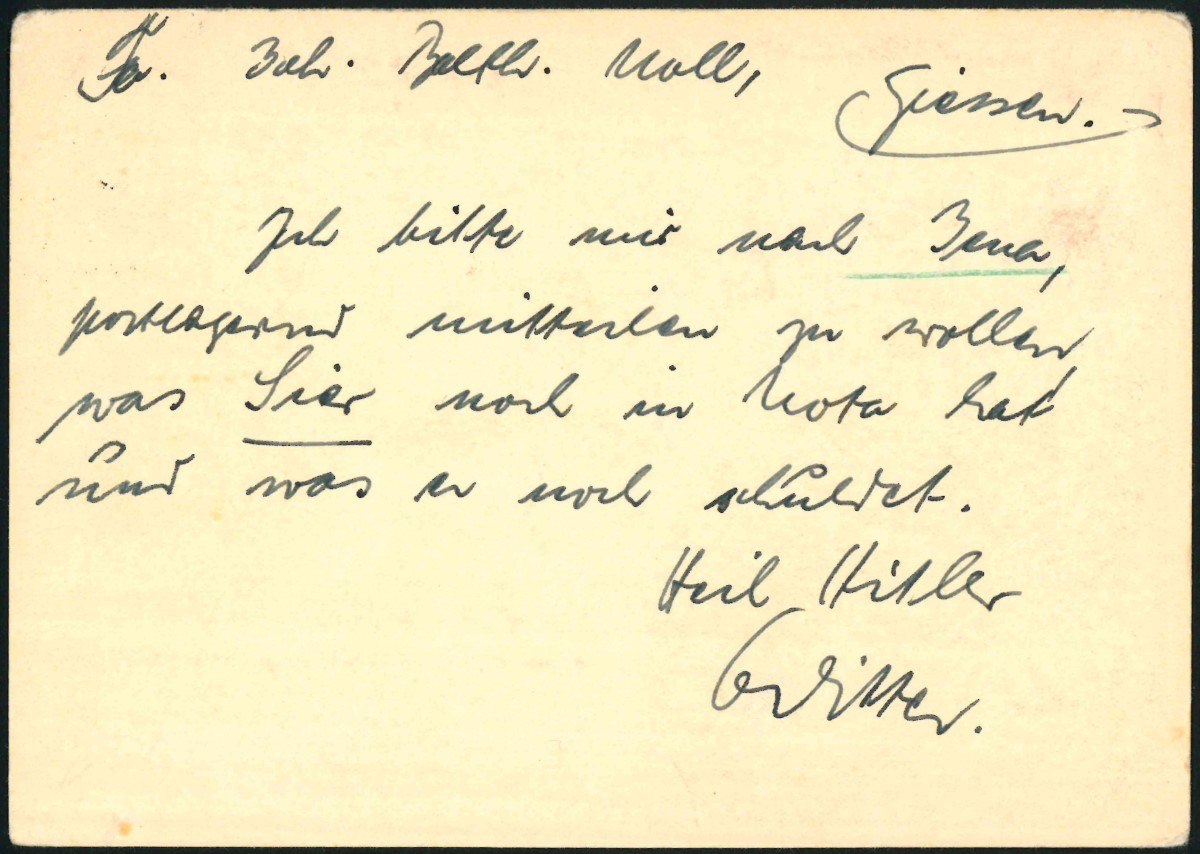 Fa. Joh. Balth. Noll,
Giessen.
Ich bitte mir nach Jena,
postlagernd mitteilen zu wollen,
was Sier noch in Nota hat
und was er noch schuldet.
Heil Hitler